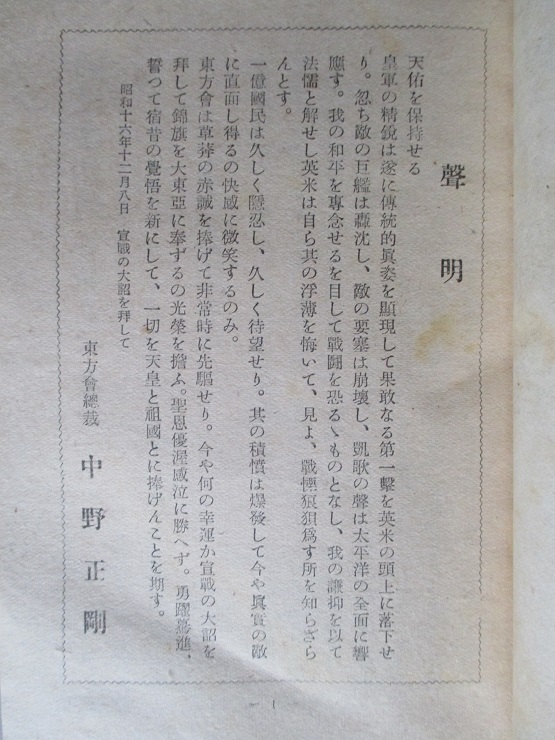 聲明
天佑を保持せる
皇軍の精銳は遂に傳統的眞姿を顯現して果敢なる第一擊を英米の頭上に落下せ
り。忽ち敵の巨艦は轟沈し、敵の要塞は崩壞し、凱歌の聲は太平洋の全面に響
應す。我の和平を專念せるを目して戰鬪を恐るゝものとなし、我の謙抑を以て
法懦と解せし英米は自ら其の浮薄を悔いて、見よ、戰慄狼狽爲す所を知らざら
んとす。
一億國民は久しく隱忍し、久しく待望せり。其の積憤は爆發して今や眞實の敵
に直面し得るの快感に微笑するのみ。
東方會は草莽の赤誠を捧げて非常時に先驅せり。今や何の幸運か宣戰の大詔を
拜して錦旗を大東亞に奉ずるの光榮を擔ふ。聖恩優渥感泣に勝へず。勇躍驀進、
誓つて宿昔の覺悟を新にして、一切を天皇と祖國とに捧げんことを期す。
昭和十六年十二月八日　宣戰の大詔を拜して
東方會總裁　中野正剛
— 1 —